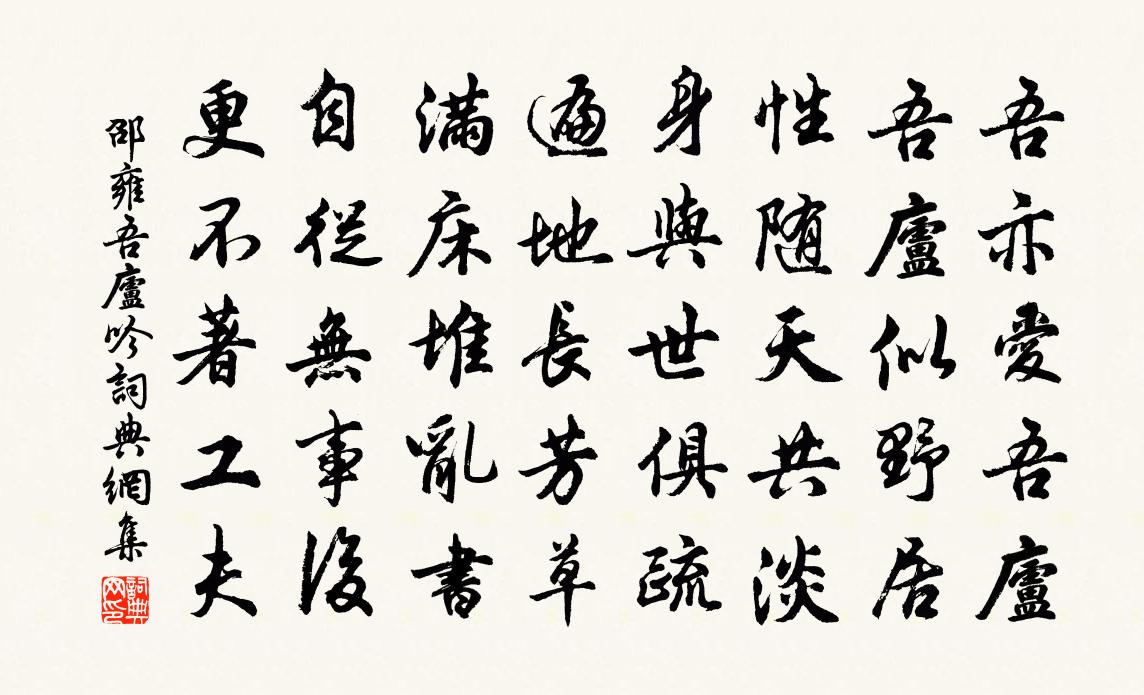 吾亦愛吾廬
吾廬似野居
性随天共淡
身與世俱疏
遍地長芳草
滿床堆亂書
自從無事後
更不著工夫
邵雍吾廬吟詞典網集
詞典网印